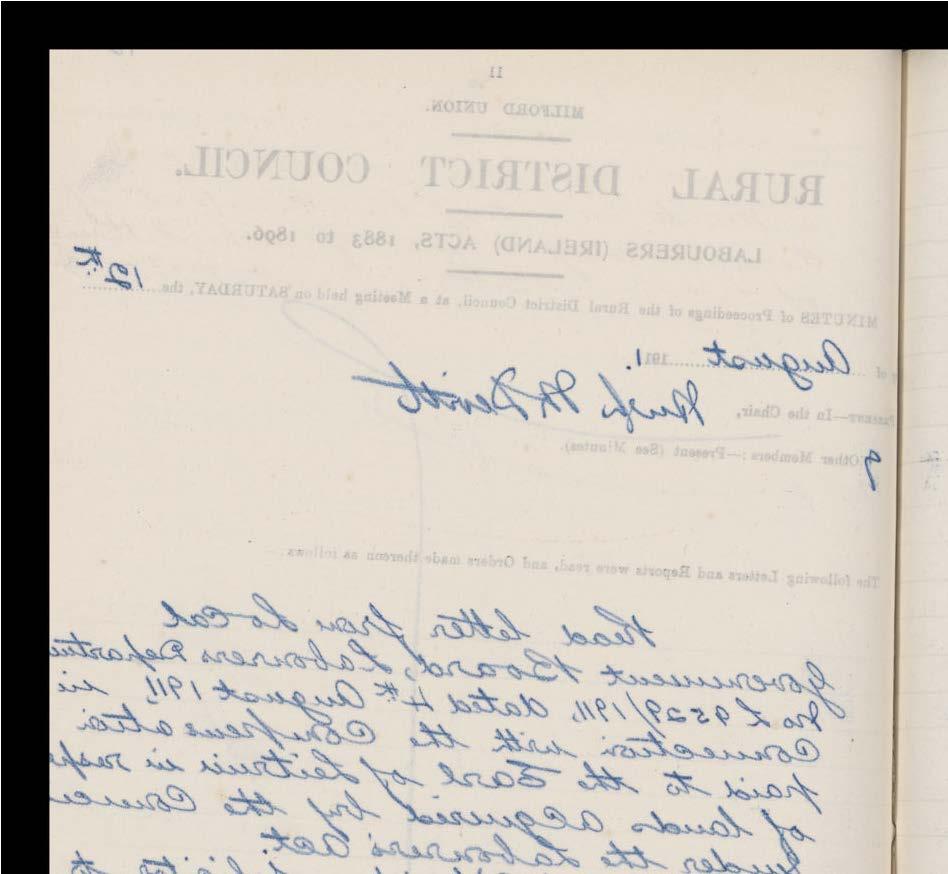 11
MILFORD UNION.
RURAL DISTRICT COUNCIL.
LABOURERS (IRELAND) ACTS, 1883 to 1896.
MINUTES of Proceedings of the Rural District Council, at a Meeting held on SATURDAY, the 12th
of August 1911.
PRESENT—In the Chair, Hugh McDevitt
9 Other Members :—Present (See Minutes).
The following Letters and Reports were read, and Orders made thereon as follows
Read letter from Local
Government Board, Labourers Departme
No L 9529/1911, dated 4th August 1911, in
Connection with the Compensation
paid to the Earl of Leitrim in resp
of lands acquired by the Counci
under the Labourers Act.